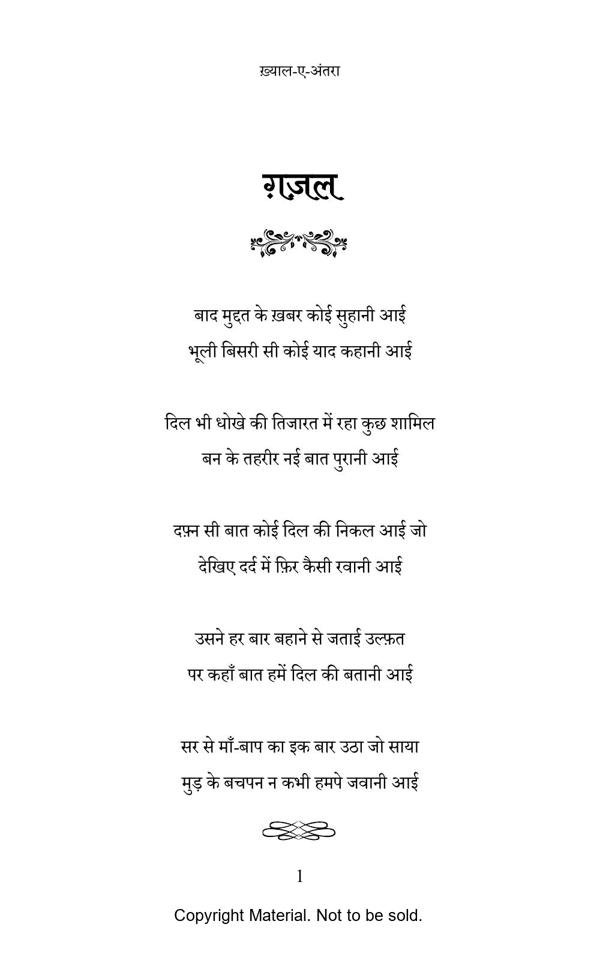 ख़्याल-ए-अंतरा
ग़ज़ल
बाद मुद्दत के ख़बर कोई सुहानी आई
भूली बिसरी सी कोई याद कहानी आई
दिल भी धोखे की तिजारत में रहा कुछ शामिल
बन के तहरीर नई बात पुरानी आई
दफ़्न सी बात कोई दिल की निकल आई जो
देखिए दर्द में फ़िर कैसी रवानी आई
उसने हर बार बहाने से जताई उल्फ़त
पर कहाँ बात हमें दिल की बतानी आई
सर से माँ-बाप का इक बार उठा जो साया
मुड़ के बचपन न कभी हमपे जवानी आई
1
Copyright Material. Not to be sold.